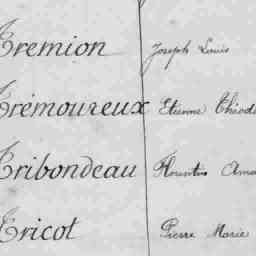 Tremion Joseph Louis
Trémoureux Etienne Théod
Tribondeau Florentin Ama
Tricot Pierre Marie